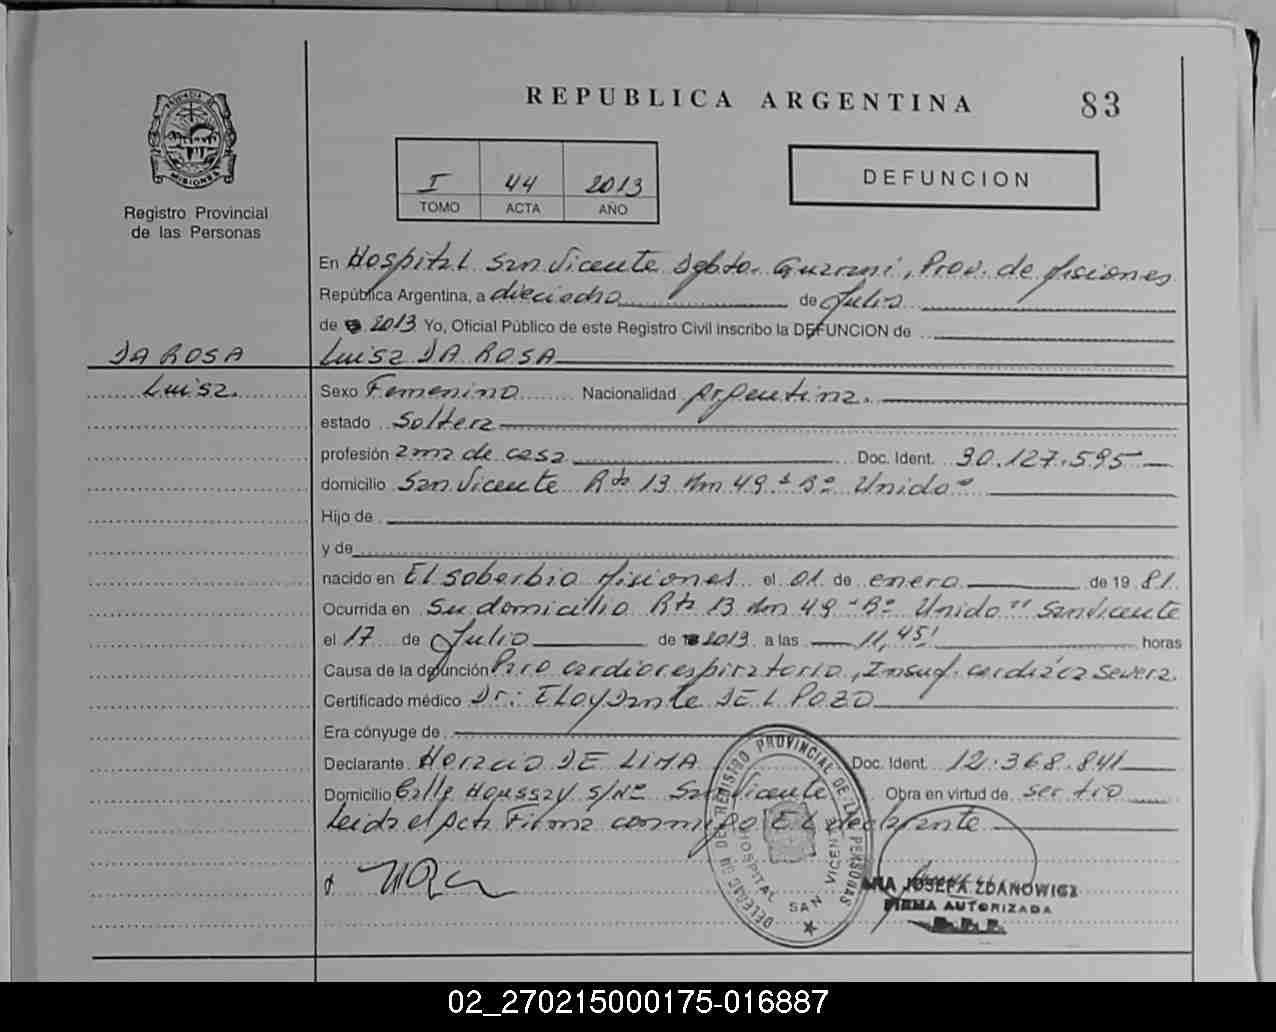 REPUBLICA ARGENTINA 83
PROVINCIA DE MISIONES
Registro Provincial
de las Personas
I 44 2013
TOMO ACTA AÑO
DEFUNCION
En Hospital San Vicente Dpto. Guarani, Prov. de Misiones
República Argentina, a dieciocho de Julio
de 2013 Yo, Oficial Público de este Registro Civil inscribo la DEFUNCION de
DA ROSA Luisa DA ROSA
Luisa. Sexo Femenino Nacionalidad Argentina.
estado Soltera
profesión ama de casa Doc. Ident. 30.127.595
domicilio San Vicente Rta 13 Km 49 Bº Unido
Hijo de
y de
nacido en El Soberbio Misiones el 01 de enero de 1981
Ocurrida en Su domicilio Rta 13 Km 49 - Bº Unido San Vicente
el 17 de Julio de 2013 a las 11,45' horas
Causa de la defunción Paro cardiorespiratorio, Insuf. cardiaca severa.
Certificado médico Dr: Eloy Dante DEL POZO
Era cónyuge de
Declarante Horacio DE LIMA Doc. Ident. 12.368.841
Domicilio Calle Houssay S/Nº San Vicente Obra en virtud de ser tio
Leida el Acta Firma conmigo El declarante
DELEGACION DEL REGISTRO PROVINCIAL DE LAS PERSONAS
HOSPITAL SAN VICENTE
ANA JOSEFA ZDANOWICZ
FIRMA AUTORIZADA
02_270215000175-016887